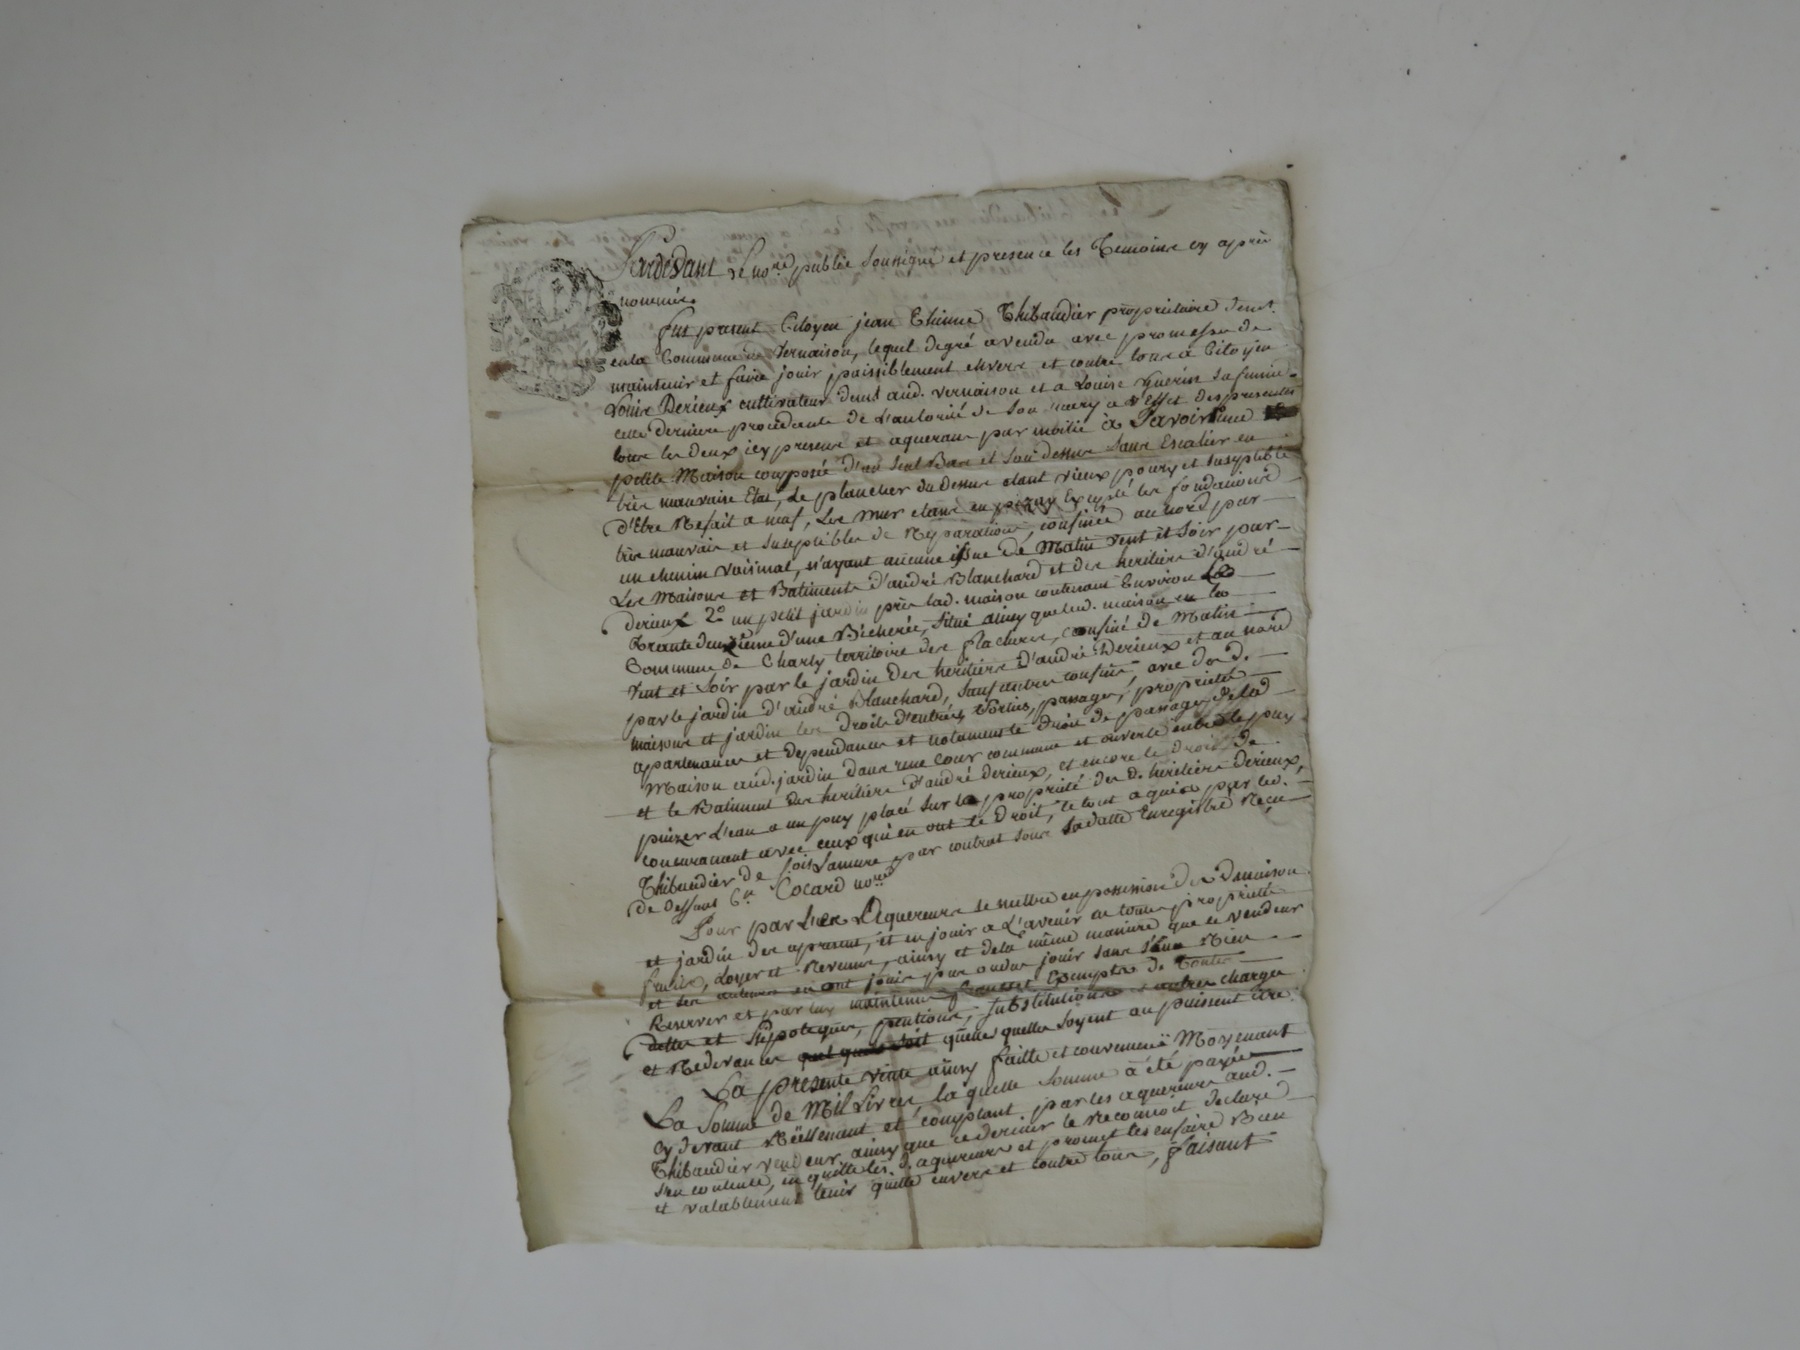 Pardevant le no.re public soussigné et presence les Temoins cy après
nommés.
fut present Citoyen jean Etienne Thibaudier proprietaire demt.
en la Commune de Vernaison, lequel degré a vendu avec promesse de
maintenir et faire jouir paisiblement envers et contre tous a Citoyen
Louis Derieux cultivateur demt aud. Vernaison et a Louise Guerin sa femme
cette derniere procedante de l'autorité de son mary a l'effet des presentes
tous les deux icy presens et aquerans par moitié à Savoir une
petite Maison composée d'un seul Bas et son dessus sans Escalier en
très mauvais Etat, le plancher du dessus étant vieux poury et susceptible
d'être Refait a neuf, les mur etans en pizay Excepté les fondations
très mauvais et susceptibles de Reparations, confinée au nord par
un chemin voisinal, n'ayant aucune issue de Matin vent et Soir par
les Maisons et Batiments d'andré Blanchard et des heritiers d'andré
Derieux 2° un petit jardin près lad. maison contenant Environ
Trente deuxième d'une Bicherée, Situé ainsy que lad. maison en la
Commune de Charly territoire des flaches, confiné de Matin
Vent et Soir par le jardin des heritiers d'andré Derieux et au nord
par le jardin d'andré Blanchard, sauf autres confins, avec des d.
maisons et jardin les Droits d'entrées sorties, passages, proprietés
apartenances et Dependances et notament le droit de passage de lad
Maison aud. jardin dans une Cour commune et ouverte entre le puy
et le Batiment des heritiers d'andré Derieux, et encore le droit de
puizer l'eau a un puy placé sur la propriété des d. heritiers Derieux,
concuramant avec ceux qui en ont le Droit, le tout aquis par led.
Thibaudier de fois Lamure par contrat sous sa datte Enregistré Reçu
de deffunt C.n Cocard no.re
Pour par les Aquereurs se mettre en possession des d maison
et jardin des apresent, et en jouir a l'avenir en toute propriété
fruits, Loyer et Revenus, ainsy et de la même maniere que le vendeur
et ses auteurs en ont jouir pus ou dus jouir sans s'en Rien
Reserver et par luy maintenu francs et Exempts de Toutes
dettes et Hipoteques, pentions, Substitutions et autres charges
et Redevances quelles quelles soyent ou puissent être.
La presente vente ainsy faitte et convenue Moyenant
La Somme de Mil Livres la quelle Somme à été payée
Cy devant Réellement et comptant par les aquereurs aud.
Thibaudier vendeur ainsy que ce dernier le Reconnoit declare
s'en contente, en quitte les d. aquereurs et promet les en faire Bien
et valablement tenir quitte envers et contre tous, faisant